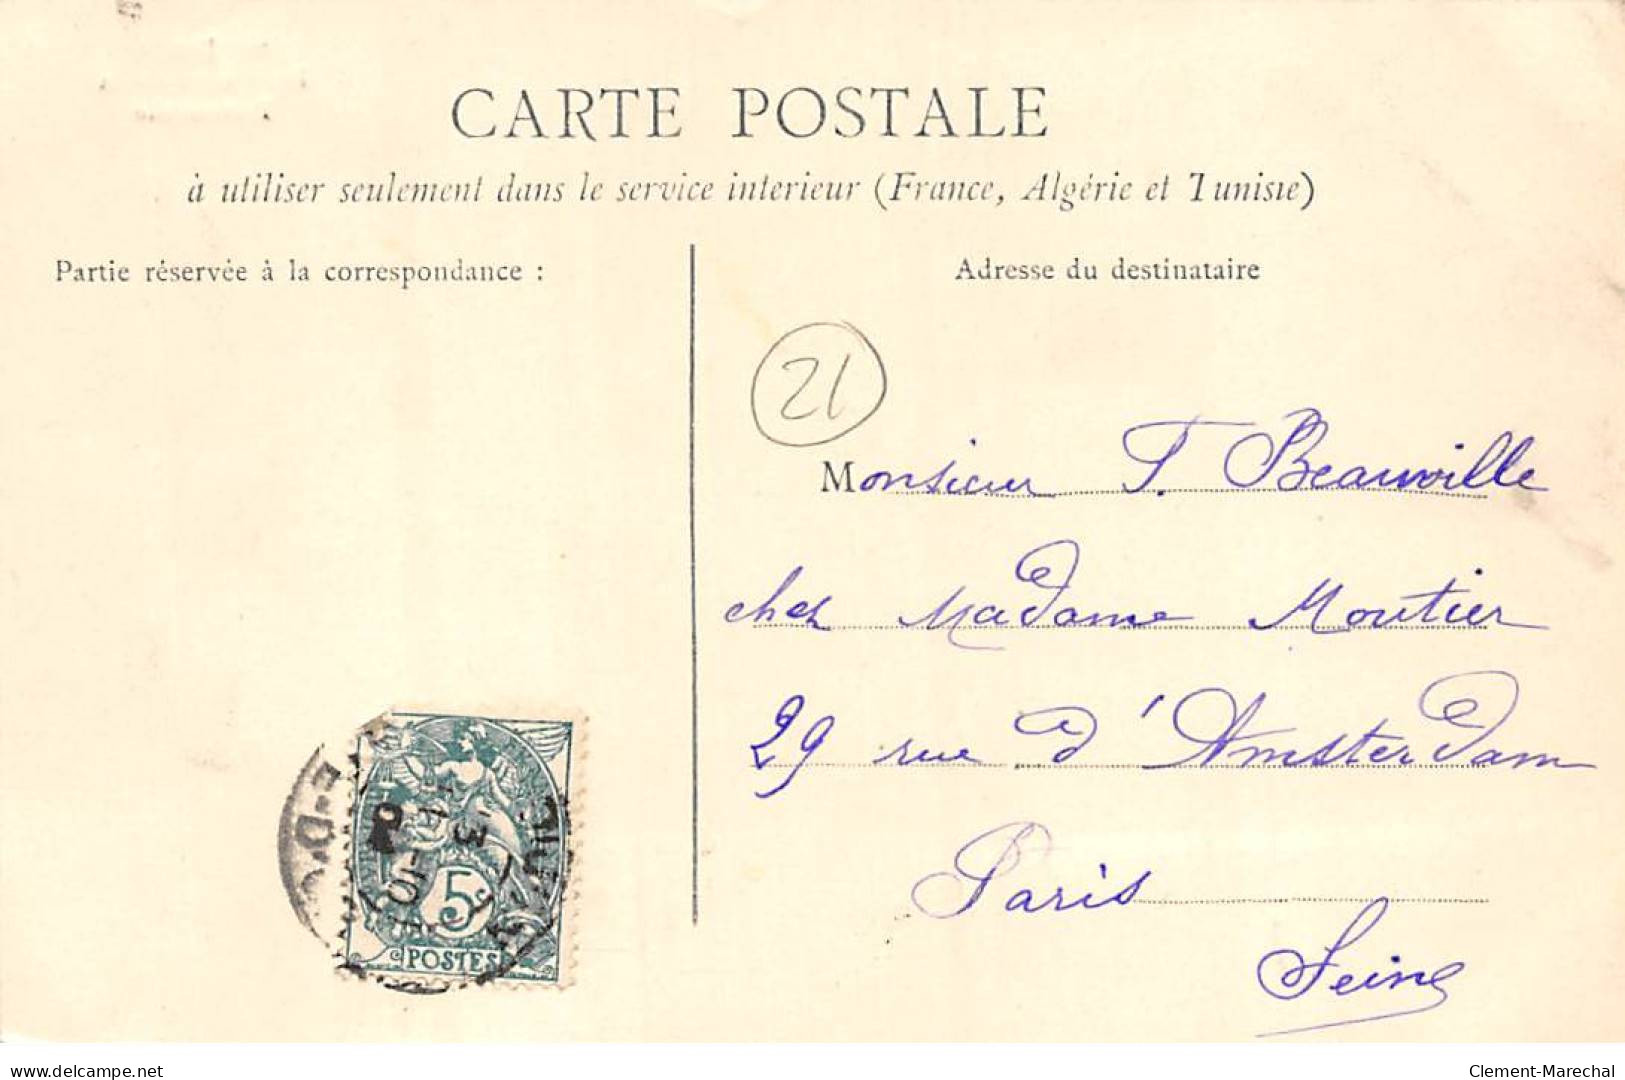 CARTE POSTALE
à utiliser seulement dans le service interieur (France, Algérie et Tunisie)
Partie réservée à la correspondance :
Adresse du destinataire
21
Monsieur T. Beauville
chez Madame Moutier
29 rue d'Amsterdam
Paris
Seine
5c
POSTES
www.delcampe.net
Clement-Marechal